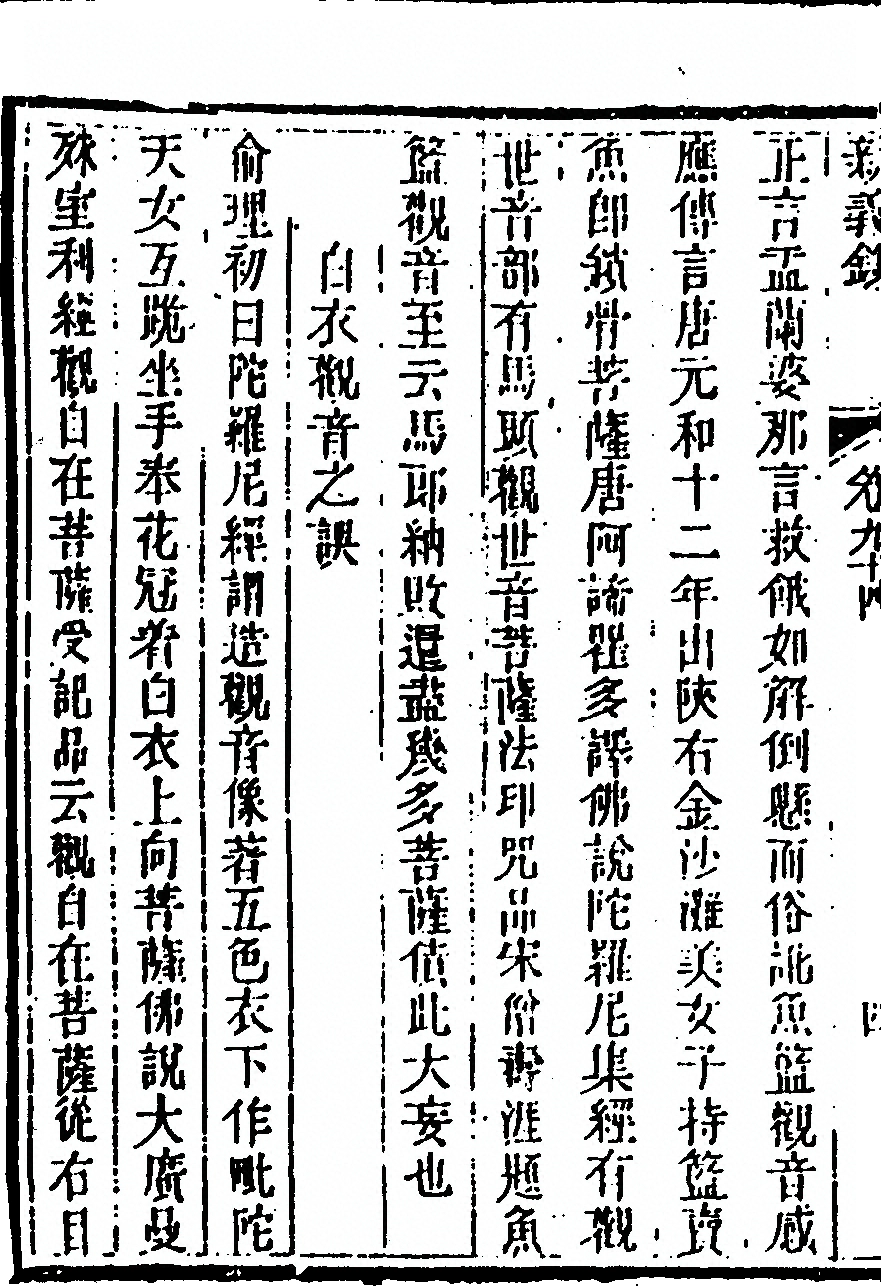 義錄 卷九十四 四
正言盂蘭婆那言救餓如解倒懸而俗訛魚籃觀音感
應傳言唐元和十二年出陝右金沙灘美女子持籃賣
魚郎鎖骨菩薩唐阿謫瞿多譯佛說陀羅尼集經有觀
世音部有馬頭觀世音菩薩法印咒品宋僧壽涯題魚
籃觀音至云馬郎納敗還盡幾多菩薩債此大妄也
白衣觀音之誤
俞理初曰陀羅尼經謂造觀音像著五色衣下作毗陀
天女互跪坐手奉花冠者白衣上向菩薩佛說大廣曼
殊室利經觀自在菩薩受記品云觀自在菩薩從右目